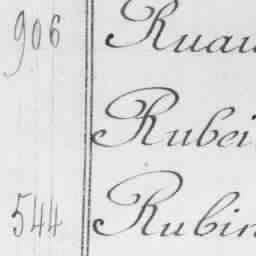 906 Ruau
Rubei
544 Rubin